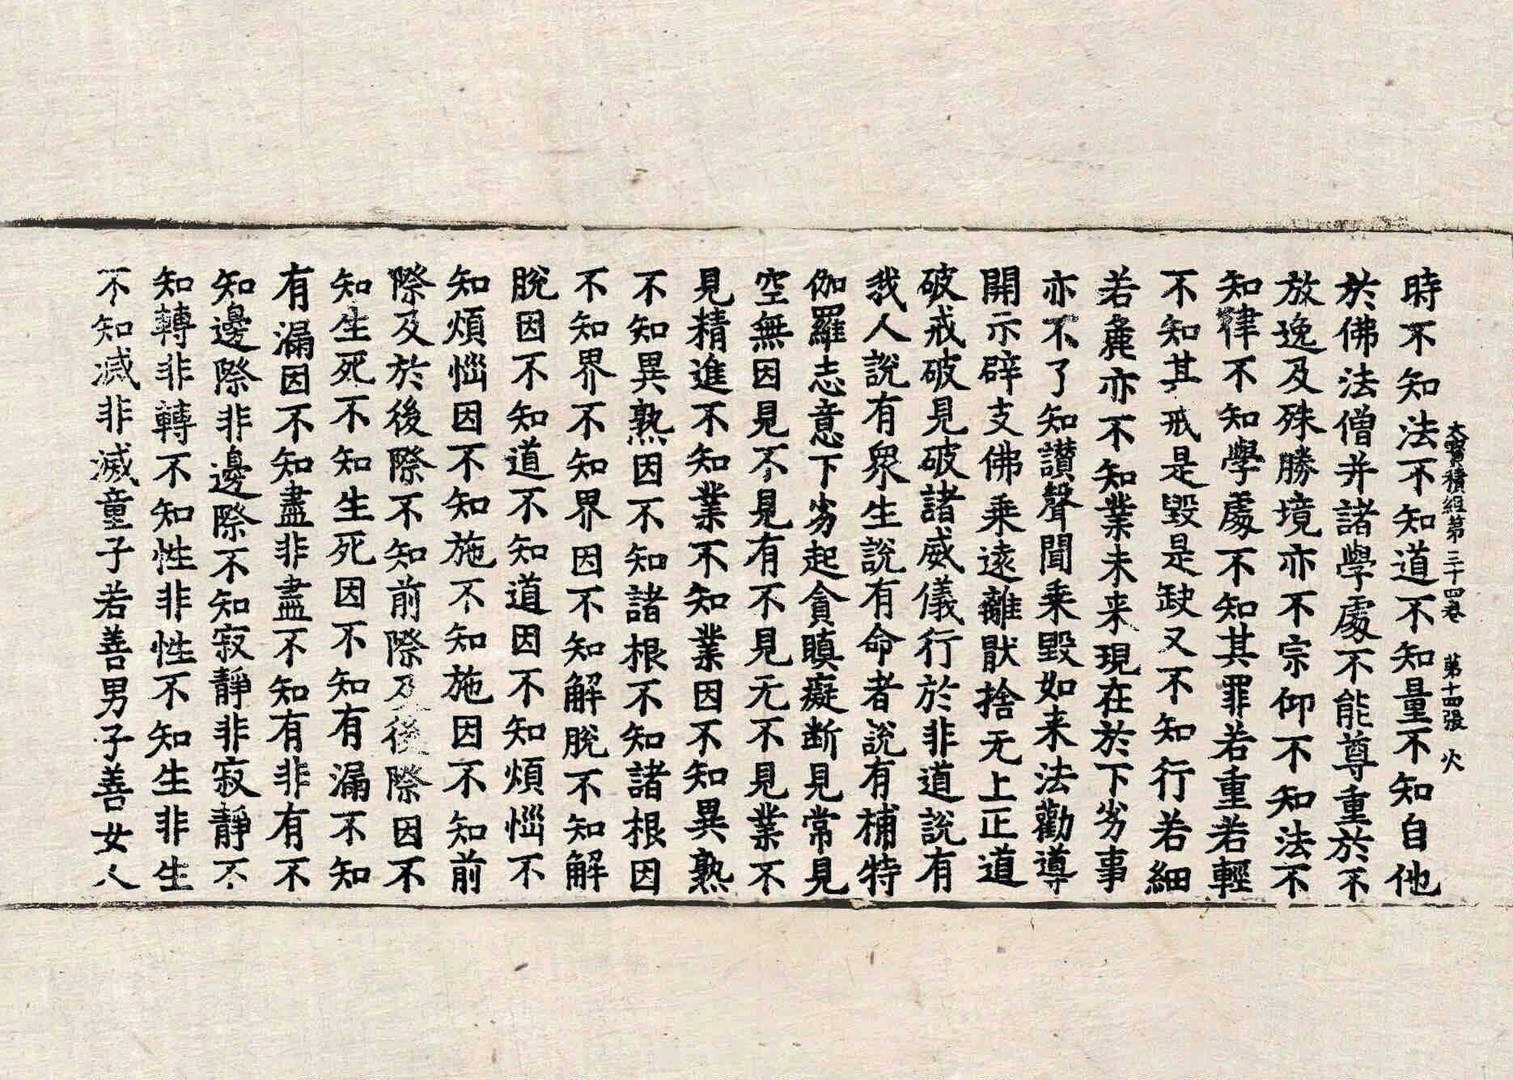 大寶積經第三十四卷 第十四張 火
時不知法不知道不知量不知自他
於佛法僧并諸學處不能尊重於不
放逸及殊勝境亦不宗仰不知法不
知律不知學處不知其罪若重若輕
不知其戒是毀是缺又不知行若細
若麁亦不知業未来現在於下劣事
亦不了知讃聲聞乘毀如来法勸導
開示辟支佛乘遠離猒捨无上正道
破戒破見破諸威儀行於非道說有
我人說有衆生說有命者說有補特
伽羅志意下劣起貪瞋癡断見常見
空無因見不見有不見无不見業不
見精進不知業不知業因不知異熟
不知異熟因不知諸根不知諸根因
不知界不知界因不知解脫不知解
脫因不知道不知道因不知煩惱不
知煩惱因不知施不知施因不知前
際及於後際不知前際及後際因不
知生死不知生死因不知有漏不知
有漏因不知盡非盡不知有非有不
知邊際非邊際不知寂靜非寂靜不
知轉非轉不知性非性不知生非生
不知滅非滅童子若善男子善女人